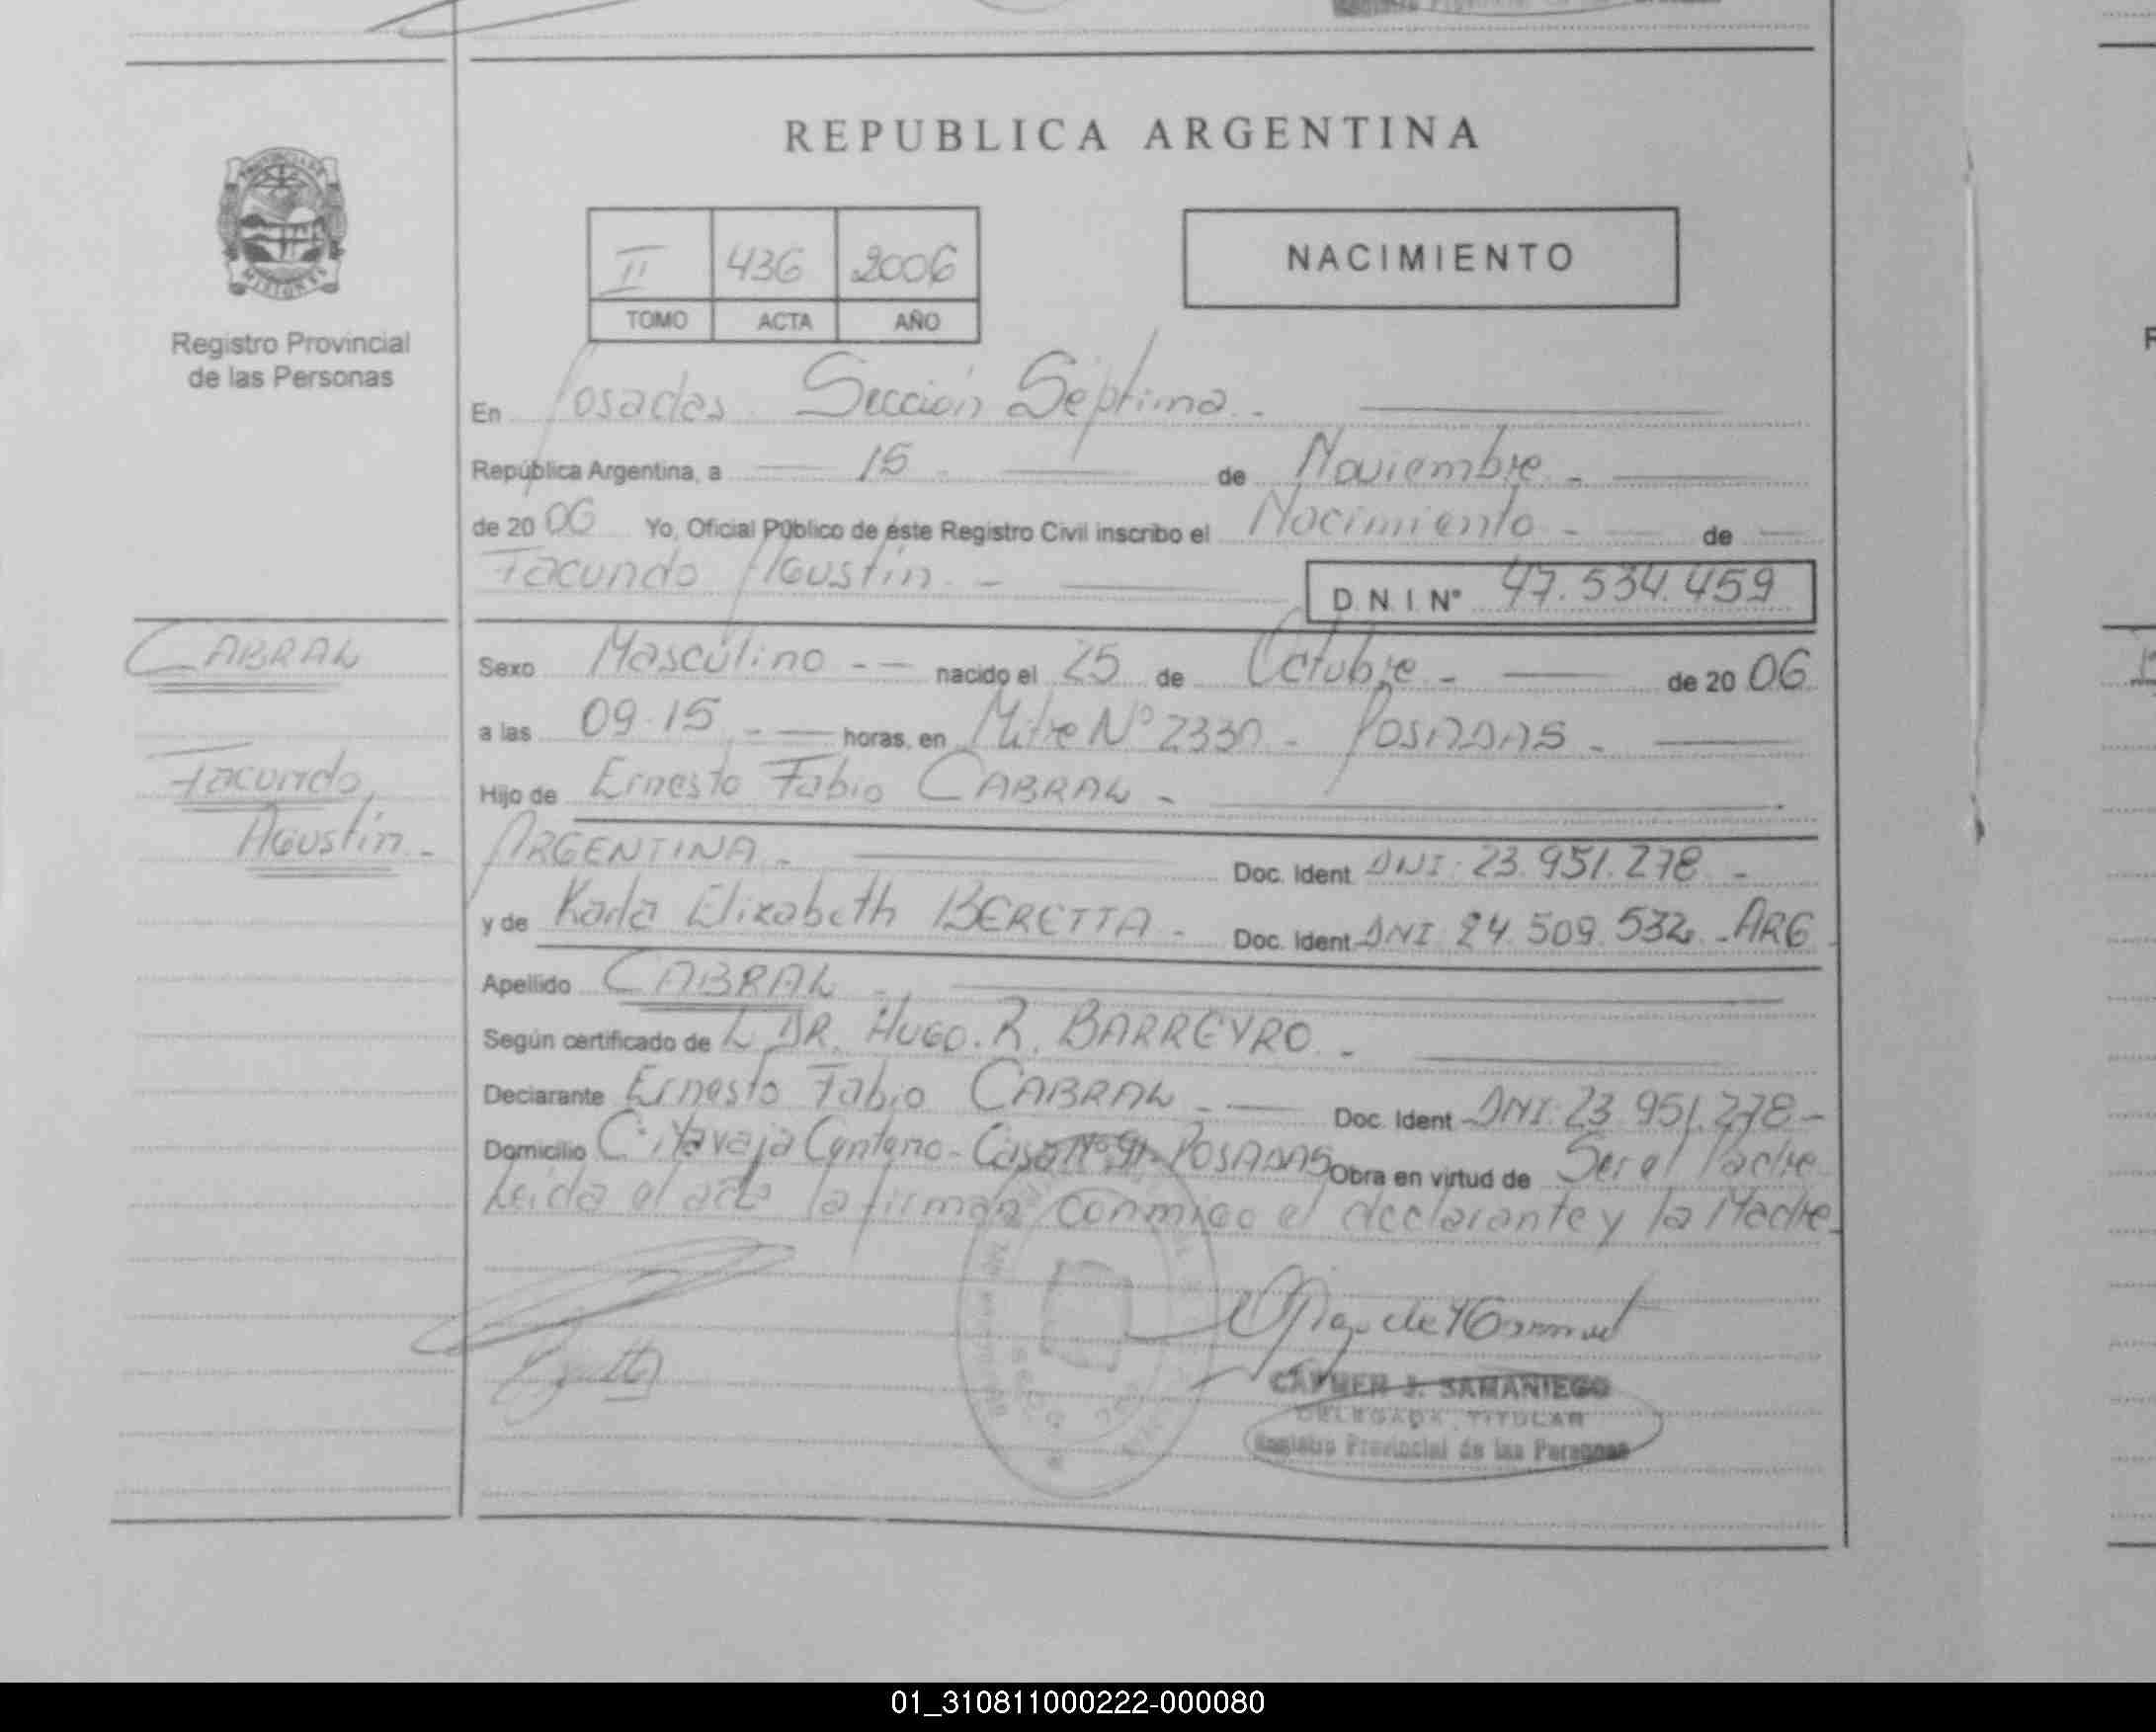 REPUBLICA ARGENTINA
PROVINCIA DE
MISIONES
Registro Provincial
de las Personas
II 436 2006
TOMO ACTA AÑO
NACIMIENTO
En Posadas Sección Séptima -
República Argentina, a 15 de Noviembre -
de 2006 Yo, Oficial Público de éste Registro Civil inscribo el Nacimiento - de
Facundo Agustín -
D.N.I. Nº 47.534.459
CABRAL
Facundo
Agustín -
Sexo Masculino - nacido el 25 de Octubre - de 2006
a las 09.15 - horas, en Mitre Nº 2330 - POSADAS -
Hijo de Ernesto Fabio CABRAL -
ARGENTINA - Doc. Ident DNI: 23.951.278 -
y de Karla Elizabeth BERETTA - Doc. Ident DNI 24 509. 532 - ARG
Apellido CABRAL -
Según certificado de L DR. HUGO. R. BARREYRO -
Declarante Ernesto Fabio CABRAL - Doc. Ident DNI: 23.951.278 -
Domicilio Casa Nº POSADAS Obra en virtud de Ser el Padre
Leida el acta la firman conmigo el declarante y la Madre
J. SAMANIEGO
DELEGADA TITULAR
Registro Provincial de las Personas
01_310811000222-000080